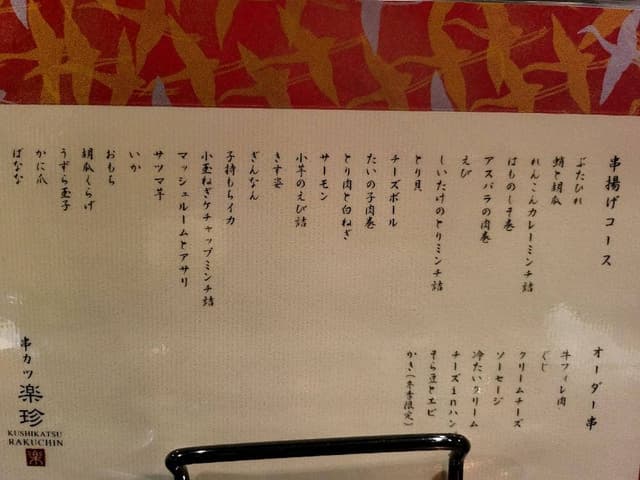 串揚げコース
ぶたひれ
蛸と胡瓜
れんこんカレーミンチ詰
はものしそ巻
アスパラの肉巻
えび
しいたけのとりミンチ詰
とり貝
たいの子肉巻
チーズボール
とり肉と白ねぎ
サーモン
小芋のえび詰
きす姿
ぎんなん
子持もちイカ
小玉ねぎケチャップミンチ詰
マッシュルームとアサリ
サツマ芋
いか
おもち
胡瓜くらげ
うずら玉子
かに爪
ばなな
オーダー串
牛フィレ肉
ぐじ
クリームチーズ
ソーセージ
冷たいクリーム
チーズinハン
そら豆とエビ
かき(冬季限定)
串カツ
楽珍
KUSHIKATSU
RAKUCHIN
楽